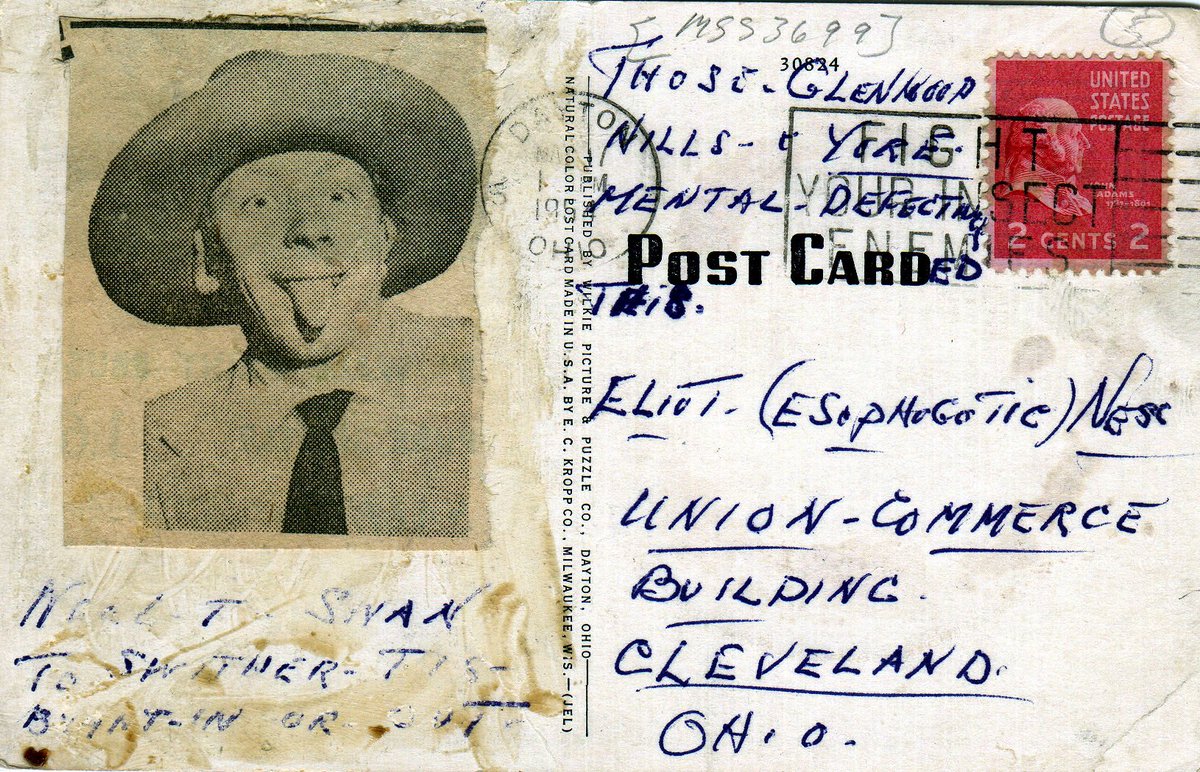 [MSS3699]
5
30824
THOSE-GLENWOOD
NILLS-
MENTAL-DEFECTIVE
ED
THIS.
POST CARD
DAYTON
OHIO
FIGHT
YOUR INSECT
ENEMIES
UNITED
STATES
POSTAGE
ADAMS
2 CENTS 2
ELIOT-(ESOPHOGOTIC) NESS
UNION-COMMERCE
BUILDING.
CLEVELAND.
OHIO.
PUBLISHED BY WILKIE PICTURE & PUZZLE CO., DAYTON, OHIO
NATURAL COLOR POST CARD MADE IN U.S.A. BY E. C. KROPP CO., MILWAUKEE, WIS.—(JEL)
SWAN
TO SWITHER-TIS-
IN OR-OUT-